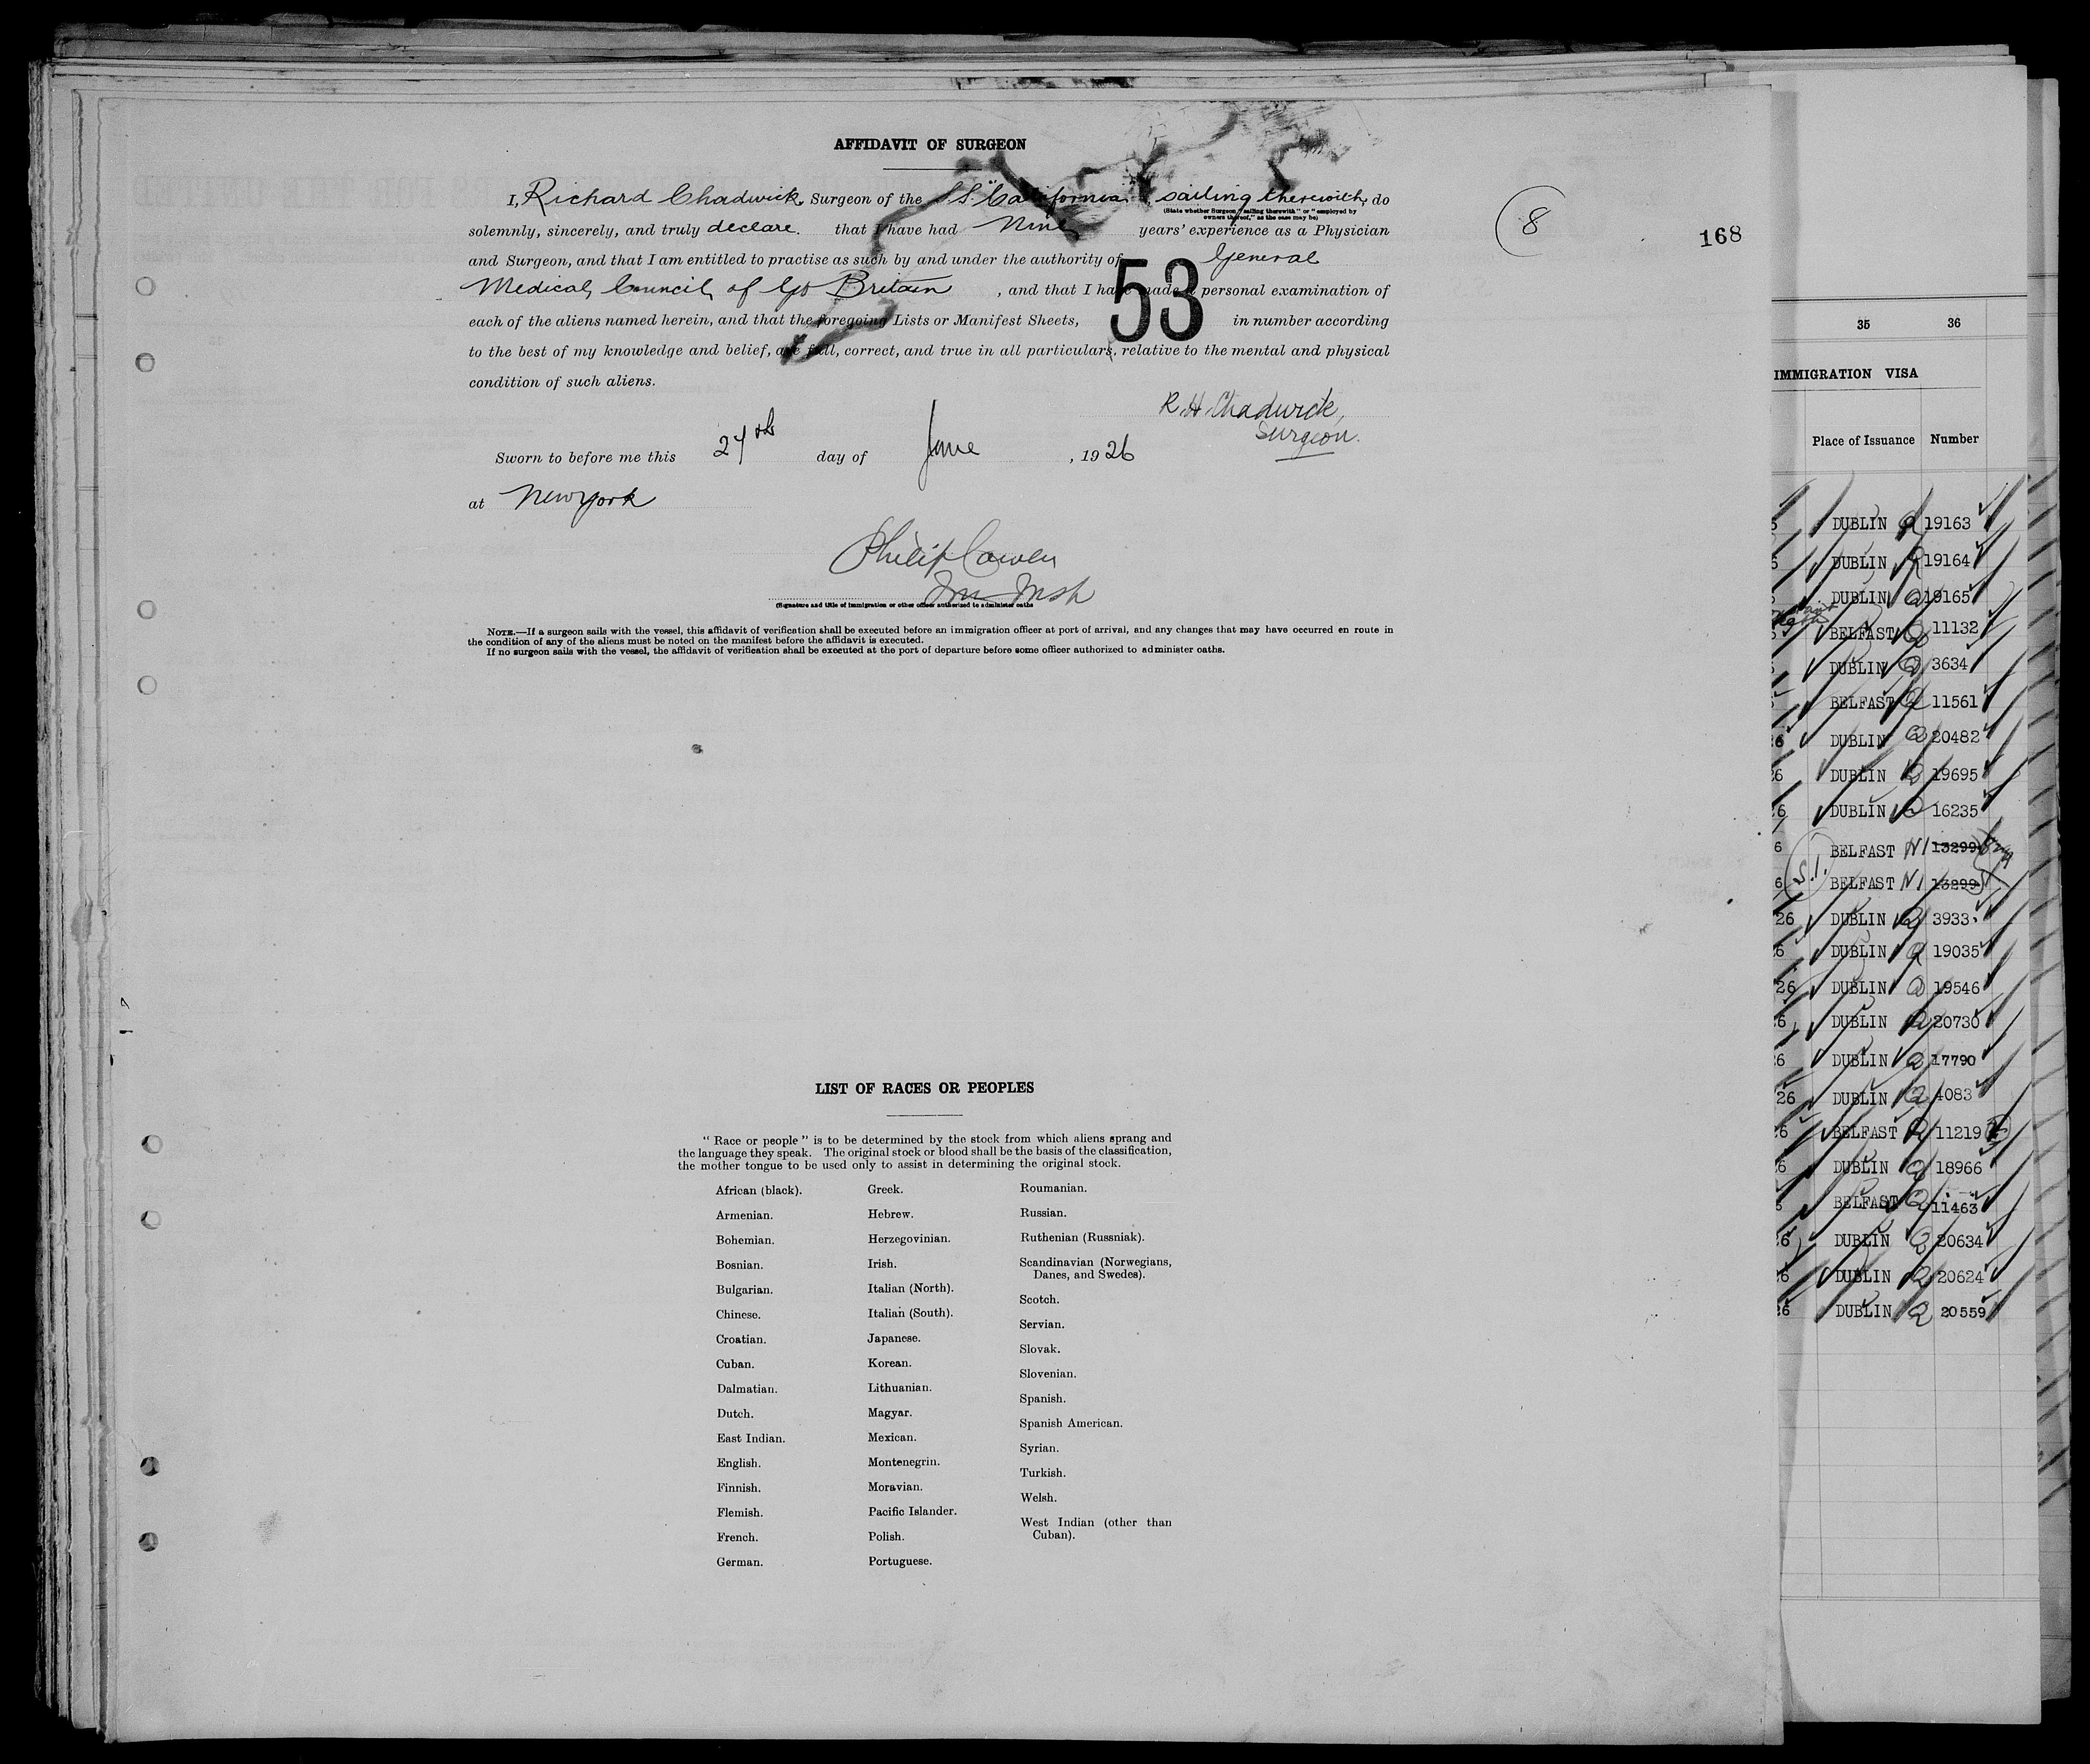 AFFIDAVIT OF SURGEON
I, Richard Chadwick, Surgeon of the S.S. "California" sailing therewith, do
(State whether Surgeon "sailing therewith" or "employed by
owners thereof," as the case may be)
solemnly, sincerely, and truly declare. that I have had Nine years' experience as a Physician
and Surgeon, and that I am entitled to practise as such by and under the authority of General
Medical Council of Gt Britain, and that I have made a personal examination of
each of the aliens named herein, and that the foregoing Lists or Manifest Sheets, 53 in number according
to the best of my knowledge and belief, are full, correct, and true in all particulars, relative to the mental and physical
condition of such aliens.
R H Chadwick,
Surgeon.
Sworn to before me this 27th day of June, 1926
at New York
Philip Cowen
Imm Insp
(Signature and title of immigration or other officer authorized to administer oaths
NOTE.—If a surgeon sails with the vessel, this affidavit of verification shall be executed before an immigration officer at port of arrival, and any changes that may have occurred en route in
the condition of any of the aliens must be noted on the manifest before the affidavit is executed.
If no surgeon sails with the vessel, the affidavit of verification shall be executed at the port of departure before some officer authorized to administer oaths.
8
168
LIST OF RACES OR PEOPLES
"Race or people" is to be determined by the stock from which aliens sprang and
the language they speak. The original stock or blood shall be the basis of the classification,
the mother tongue to be used only to assist in determining the original stock.
African (black).
Armenian.
Bohemian.
Bosnian.
Bulgarian.
Chinese.
Croatian.
Cuban.
Dalmatian.
Dutch.
East Indian.
English.
Finnish.
Flemish.
French.
German.
Greek.
Hebrew.
Herzegovinian.
Irish.
Italian (North).
Italian (South).
Japanese.
Korean.
Lithuanian.
Magyar.
Mexican.
Montenegrin.
Moravian.
Pacific Islander.
Polish.
Portuguese.
Roumanian.
Russian.
Ruthenian (Russniak).
Scandinavian (Norwegians,
Danes, and Swedes).
Scotch.
Servian.
Slovak.
Slovenian.
Spanish.
Spanish American.
Syrian.
Turkish.
Welsh.
West Indian (other than
Cuban).
35 36
IMMIGRATION VISA
Place of Issuance Number
DUBLIN Q 19163
DUBLIN Q 19164
DUBLIN Q 19165
BELFAST Q 11132
DUBLIN Q 3634
BELFAST Q 11561
6 DUBLIN Q 20482
26 DUBLIN Q 19695
6 DUBLIN Q 16235
6 BELFAST N1 13299
S.I.
6 BELFAST N1 13299
26 DUBLIN Q 3933
6 DUBLIN Q 19035
26 DUBLIN Q 19546
6 DUBLIN Q 20730
6 DUBLIN Q 17790
26 DUBLIN Q 4083
6 BELFAST Q 11219
6 DUBLIN Q 18966
BELFAST Q 11463
6 DUBLIN Q 20634
6 DUBLIN Q 20624
26 DUBLIN Q 20559